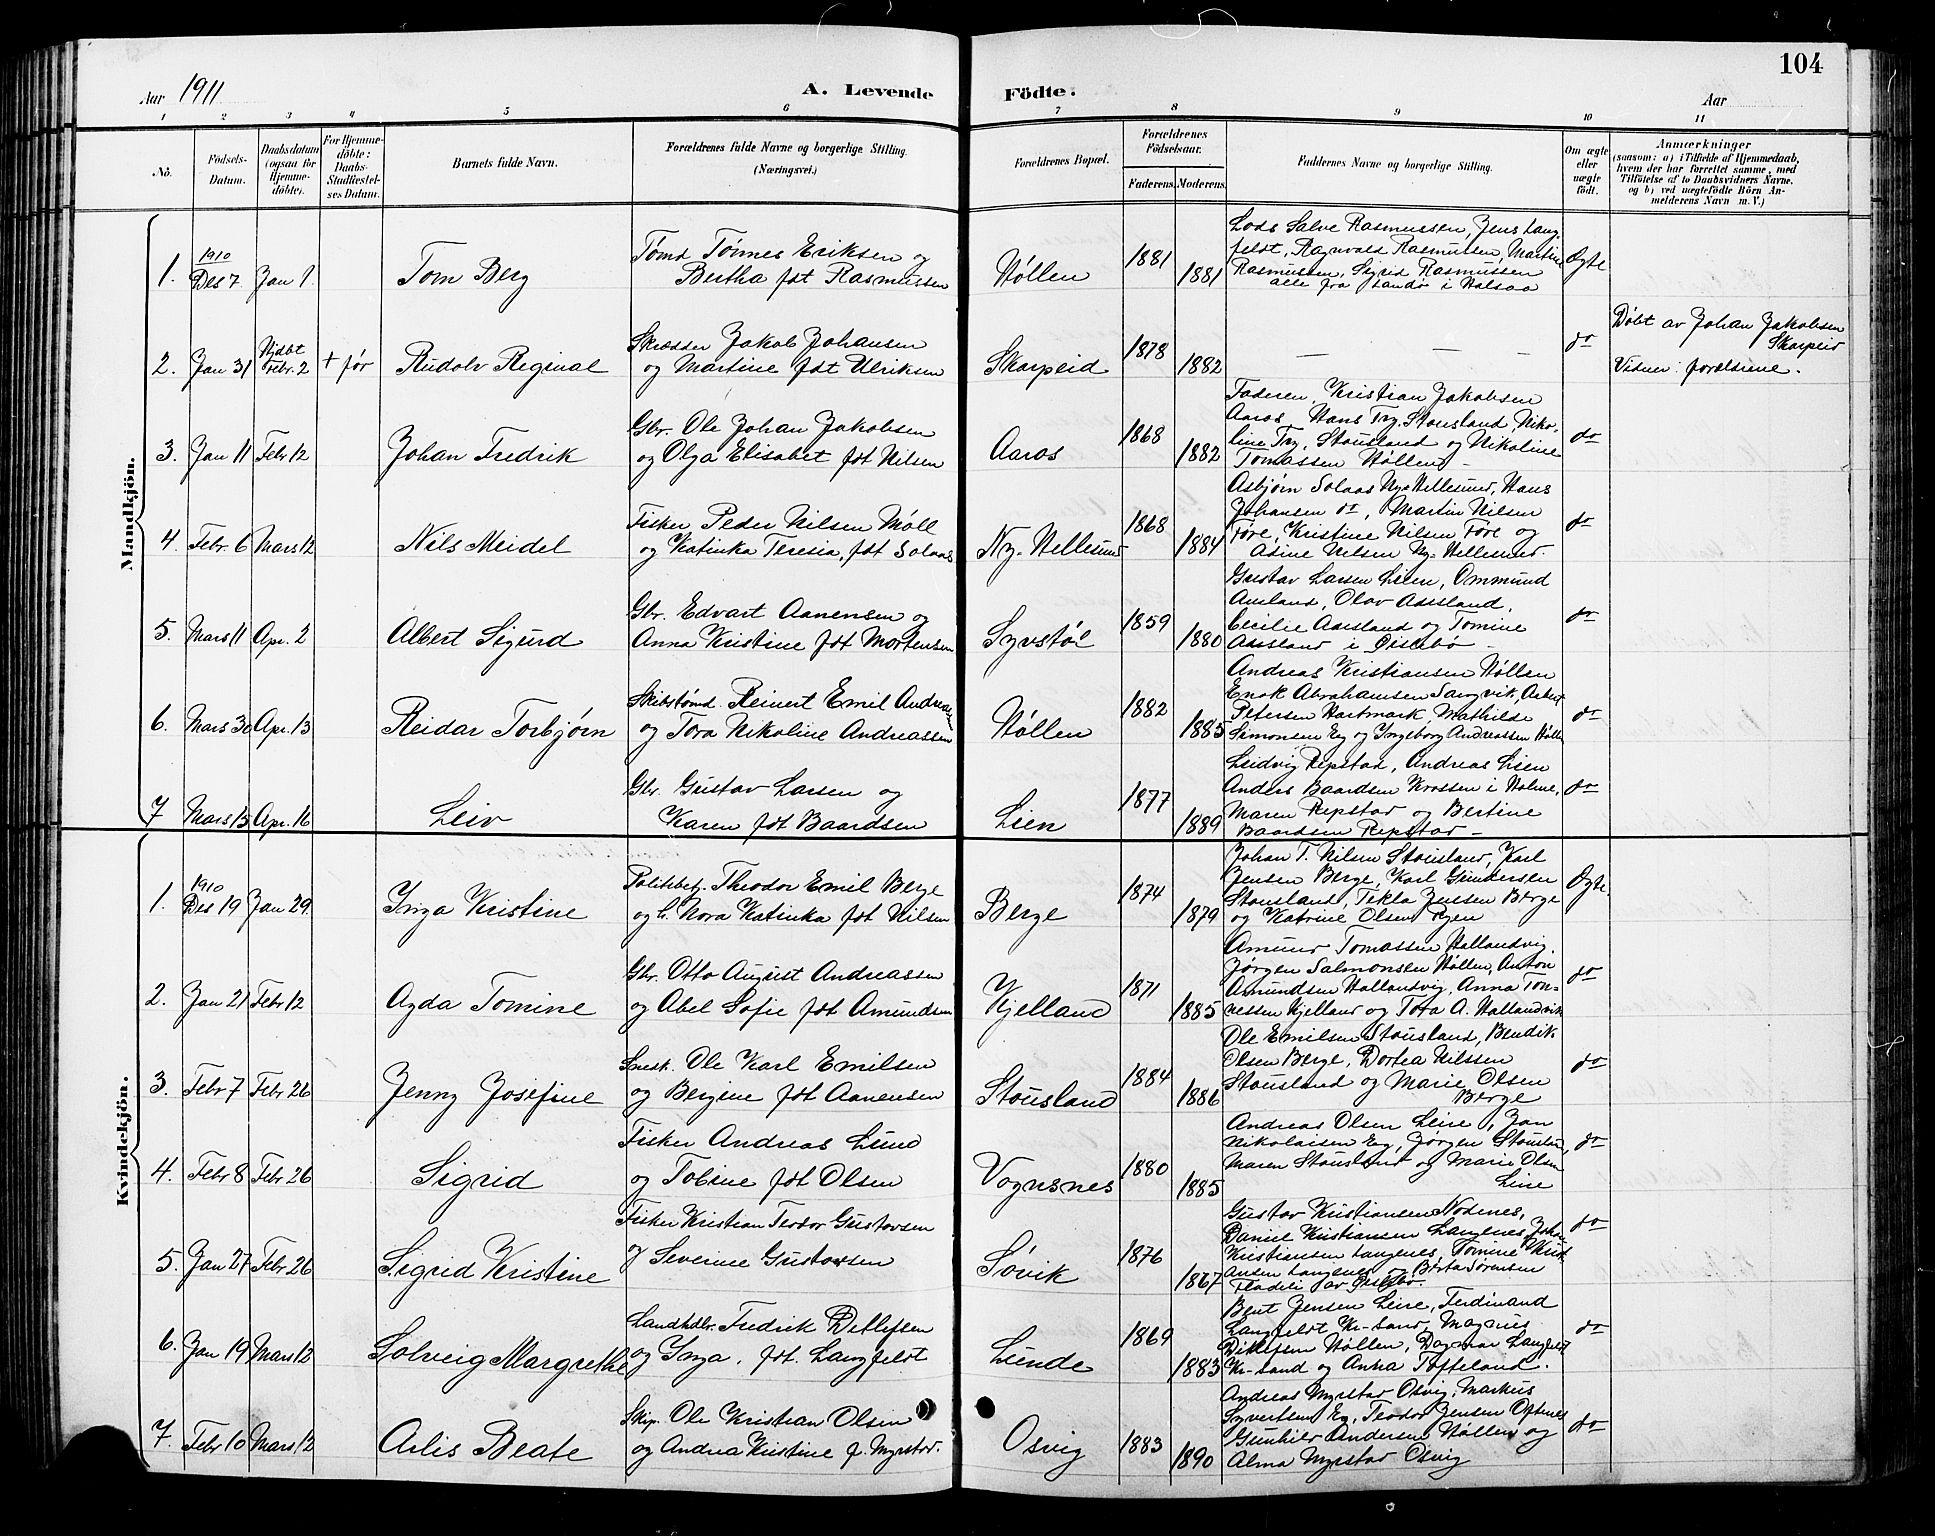 104
Aar 1911
A. Levende Födte.
Aar
1 2 3 4 5 6 7 8 9 10 11
No.
Födsels-Datum.
Daabsdatum (ogsaa for Hjemme-döbte).
For Hjemme-döbte: Daabs-Stadfæstel-ses Datum.
Barnets fulde Navn.
Forældrenes fulde Navne og borgerlige Stilling. (Næringsvei.)
Forældrenes Bopæl.
Forældrenes Födselsaar.
Faderens. Moderens.
Faddernes Navne og borgerlige Stilling.
Om ægte eller uægte födt.
Anmærkninger
(saasom: a) i Tilfælde af Hjemmedaab,
hvem der har forrettet samme, med
Tilföielse af to Daabsvidners Navne,
og b) ved uægtefödte Börn An-
melderens Navn m. V.)
Mandkjön.
1. 1910 Des 7 Jan 1 Tom Berg
Tømd Tönnes Eriksen og
Bertha fdt Rasmussen
Høllen 1881 1881
Lods Salve Rasmussen, Jens Lang
feldt, Ragnvald Rasmussen, Martine
Rasmussen, Sigrid Rasmussen
alle fra Landø i Halsaa
Ægte
2. Jan 31 Hjdbt Febr. 2 + før Rudolv Reginal
Skrædder Jakob Johansen
og Martine fdt Ulriksen
Skarpeid 1878 1882
— — —
do
Døbt av Johan Jakobsen
Skarpeid
Vidner: forældrene.
3. Jan 11 Febr 12 Johan Fredrik
Gbr. Ole Johan Jakobsen
og Olga Elisabet fdt Nilsen
Aaros 1868 1882
Faderen, Kristian Jakobsen
Aaros, Hans Try, Stousland, Niko-
line Try, Stousland og Nikoline
Tomassen Høllen –
do
4. Febr. 6 Mars 12 Nils Meidel
Fisker Peder Nilsen Møll
og Katinka Teresia, fdt Solaas
Ny-Hellesund 1868 1884
Asbjørn Solaas Ny-Hellesund, Hans
Johansen do, Martin Nilsen
Føre, Kristine Nilsen Føre og
Asine Nilsen Ny-Hellesund.
do
5. Mars 11 Apr. 2 Albert Sigurd
Gbr. Edvart Aanensen og
Anna Kristine fdt Mortensen
Syvstøl 1859 1880
Gustav Larsen Lien, Ommund
Ausland, Olav Aasland,
Cecilie Aasland og Tomine
Aasland i Øislebø –
do
6. Mars 30 Apr. 13 Reidar Torbjørn
Skibstømd. Reinert Emil Andreassen
og Tora Nikoline Andreassen
Høllen 1882 1885
Andreas Kristiansen Høllen
Enok Abrahamsen Sangvik,
Petersen Hartmark, Mathilde
Simonsen Eg og Yngeborg Andreassen Høllen
do
7 Mars 13 Apr. 16 Leiv
Gbr. Gustav Larsen og
Karen fdt Baardsen
Lien 1877 1889
Ludvig Repstad, Andreas Lien
Anders Baardsen Krossen i Holme,
Maren Repstad og Bertine
Baardsen Repstad –
do
Kvindekjön.
1. 1910 Des 19 Jan 29. Inga Kristine
Politibetj. Theodor Emil Berge
og h. Nora Katinka fdt Nilsen
Berge 1874 1879
Johan T. Nilsen Stousland, Karl
Jensen Berge, Karl Gundersen
Stousland, Tekla Jensen Berge
og Katrine Olsen Ryen
Ægte
2. Jan 21 Febr 12 Agda Tomine
Gbr. Otto August Andreassen
og Abel Sofie fdt Amundsen
Kjelland 1871 1885
Amund Tomassen Hallandvig,
Jørgen Salmonsen Høllen, Anton
Amundsen Hallandvig, Anna Tön-
nessen Kjelland og Tora A. Hallandvik
do
3. Febr 7 Febr 26 Jenny Josefine
Snedk. Ole Karl Emilsen
og Bergine fdt Aanensen
Stousland 1884 1886
Ole Emilsen Stousland, Bendik
Olsen Berge, Dortea Nilssen
Stousland og Marie Olsen
Berge
do
4. Febr 8 Febr 26 Sigrid
Fisker Andreas Lund
og Tobine fdt Olsen
Vognsnes 1880 1885
Andreas Olsen Leire, Jan
Nikolaisen Eg, Jørgen Stousland,
Maren Stousland og Marie Olsen
Leire
do
5. Jan 27 Febr 26 Sigrid Kristine
Fisker Kristian Teodor Gustavsen
og Severine Gustavsen
Søvik 1876 1867
Gustav Kristiansen Nodenes,
Daniel Kristiansen Langenes, Johan
Kristiansen Langenes, Tomine Knud
ansen Langenes og Berta Sørensen
Fladeli av Øislebø.
do
6. Jan 19 Mars 12 Solveig Margrethe
Landhdlr. Fredrik Detlefsen
og Inga, fdt. Langfeldt
Lunde 1869 1883
Bent Jensen Leire, Ferdinand
Langfeldt Kr-sand, Magnus
Ditlefsen Høllen, Dagmar Langfeldt
Kr-sand og Anna Tofteland.
do
7. Febr 10 Mars 12 Arlis Beate
Skip. Ole Kristian Olsen
og Andrea Kristine f. Myrstad.
Osvig 1883 1890
Andreas Myrstad Osvig, Markus
Syvertsen Eg, Teodor Jensen Oftenes
Gunhild Andersen Høllen og
Alma Myrstad Osvig
do